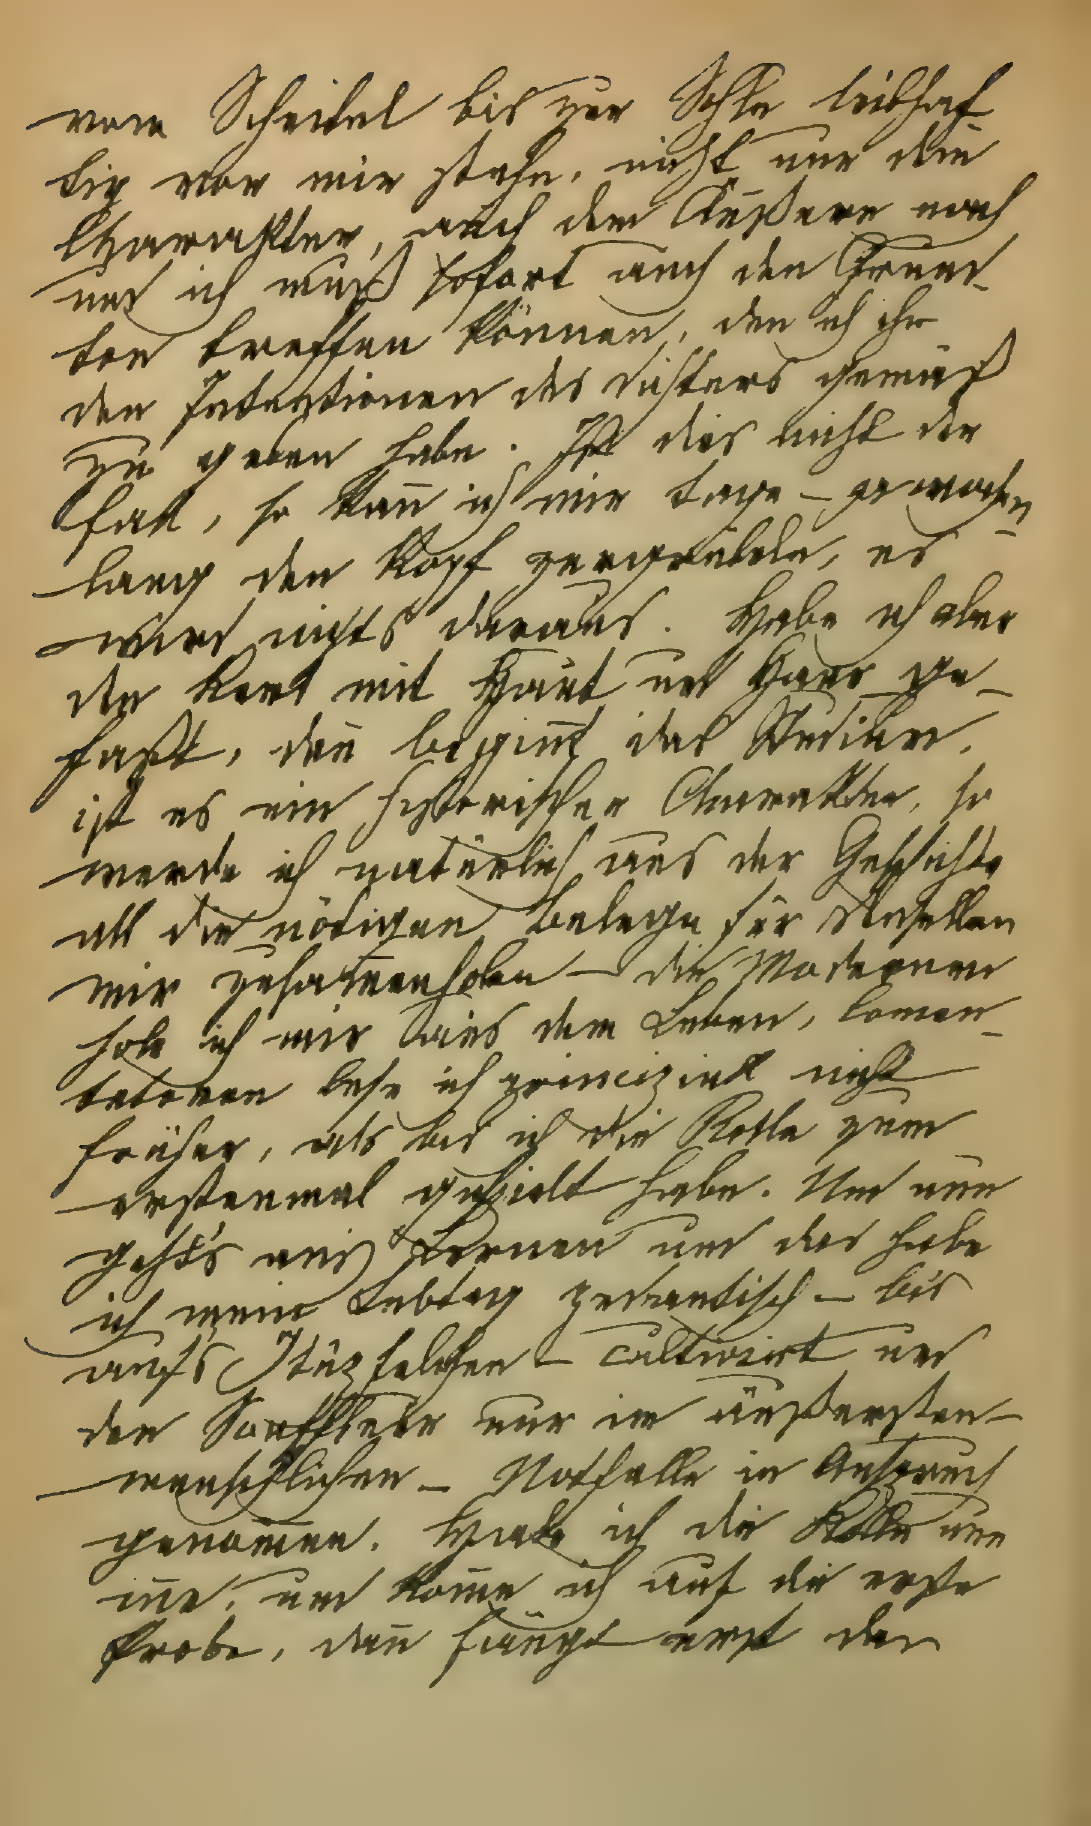 vom Scheitel bis zur Sohle leibhaf
tig vor mir stehn, nicht nur dem
Charakter, auch dem Äußern nach
und ich muß sofort auch den Grund-
ton treffen können, den ich ihm
den Intentionen des Dichters gemäß
zu geben habe. Ist dies nicht der
Fall, so kañ ich mir tage- ja wochen
lang den Kopf zergrübeln, es
wird nichts daraus. Habe ich aber
den Kerl mit Haut und Haar ge-
faßt, dañ begiñt das Studium.
ist es ein historischer Charakter, so
werde ich natürlich aus der Geschichte
all die nötigen Belege für denselben
mir zusam̄enholen – die Modernen
hole ich mir aus dem Leben, Comen-
tatoren lese ich principiell nicht
früher, als bis ich die Rolle zum
erstenmal gespielt habe. Und nun
geht's ans Lernen und das habe
ich mein Lebtag pedantisch – bis
aufs Itüpfelchen – cultivirt und
den Souffleur nur im äußersten –
menschlichen – Notfalle in Anspruch
genom̄en. Habe ich die Rolle nun
iñe, und kom̄e ich auf die erste
Probe, dañ fängt erst der